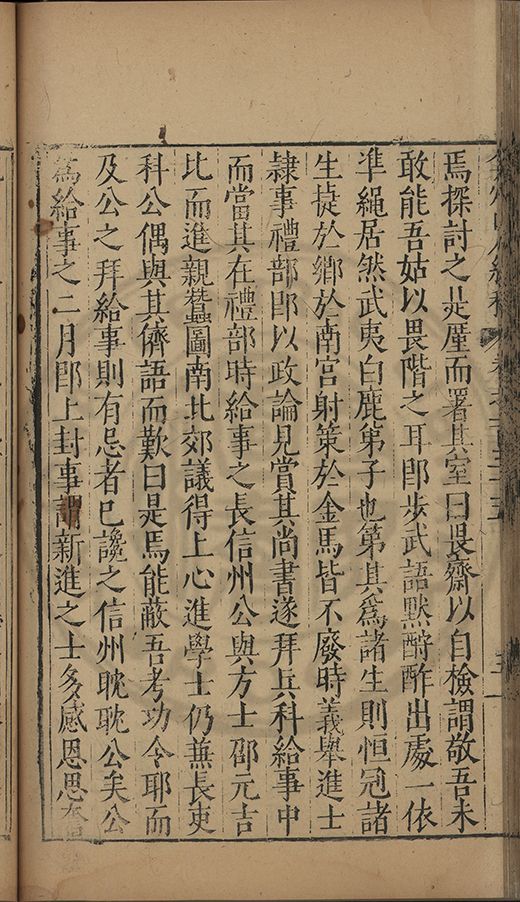 焉探討之是厓而署其室曰畏齋以自檢謂敬吾未
敢能吾姑以畏階之耳卽步武語默酧酢出處一依
凖繩居然武夷白鹿第子也第其爲諸生則恒冠諸
生㨗於鄉於南宮射策於金馬皆不廢時義舉進士
隸事禮部郎以政論見賞其尚書遂拜兵科給事中
而當其在禮部時給事之長信州公與方士邵元吉
比而進親蠶圖南北郊議得上心進學士仍兼長吏
科公偶與其儕語而歎曰是焉能蔽吾考功令耶而
及公之拜給事則有忌者已讒之信州耽耽公矣公
爲給事之二月卽上封事謂新進之士多感恩思奮